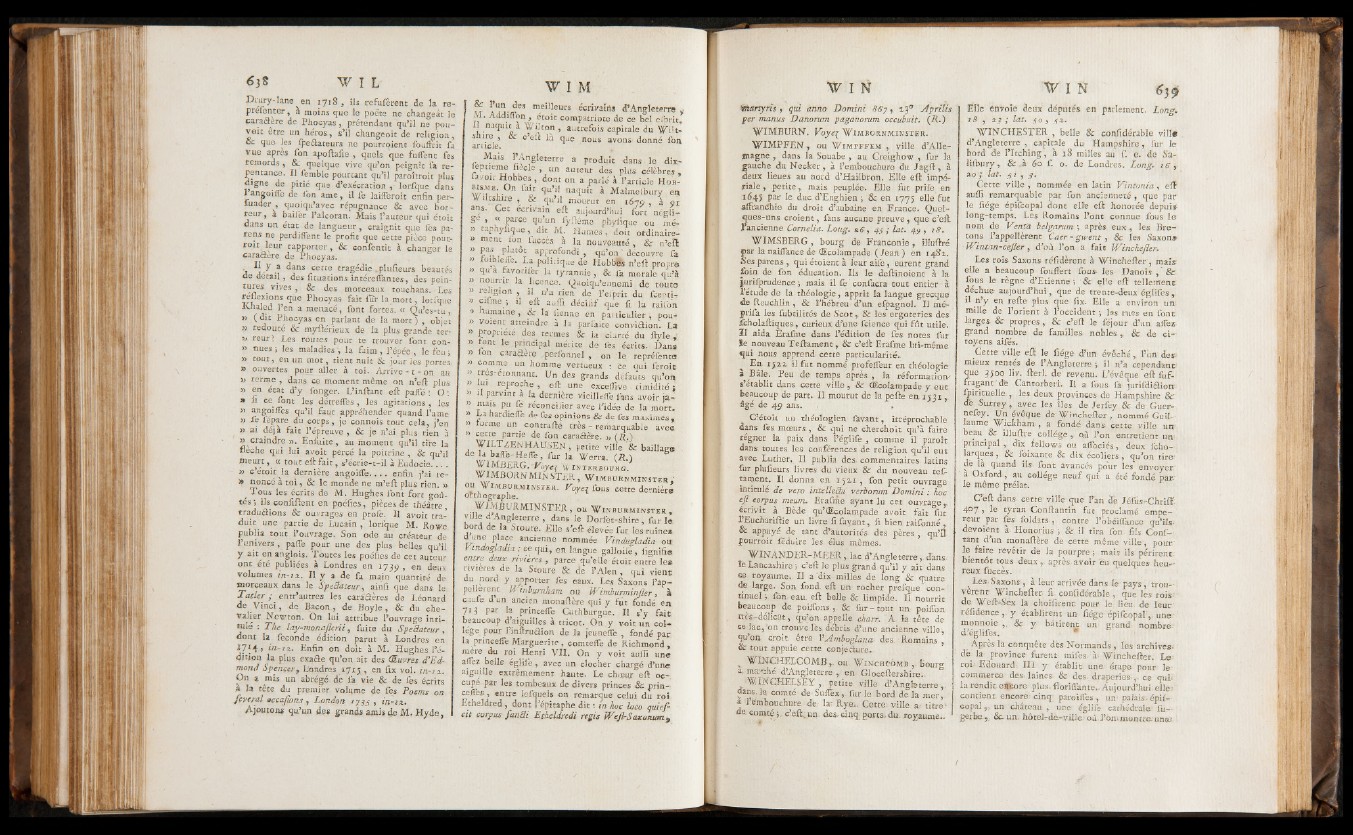 638 WIL
Drury-lane en 1718, ils refusèrent de la re-
présenter, à moins que le poëte ne changeât le
caractère de Phocyas, prétendant qu'il ne pou-
voit être un héros, s'il changeoit de religion,
& que les spectateurs ne pourroient souffrir sa
vue après son apostasie, quels que fussent ses
remords, & quelque vive qu'on peignît sa re-
pentance. Il semble pourtant qu'il paroîtroit plus
digne de pitié que d'exécration, lorsque dans
l'angoisse de son ame, il se laisseroit enfin per-
suader, quoiqu'avec répugnance & avec hor-
reur, à baiser l'alcoran. Mais l'auteur qui étoit
dans un état de langueur, craignit que ses pa-
rens ne perdissent le profit que cette pièce pour-
roit leur rapporter, & consentit à changer le
caractère de Phocyas.
Il y a dans cette tragédie plusieurs beautés
de détail, des situations intéressantes, des pein-
tures vives, & des morceaux touchans. Les
réflexions que Phocyas fait sur la mort, lorsque
Khaled l'en a menacé, sont fortes. « Qu'es-tu,
» (dit Phocyas en parlant de la mort), objet
» redouté & mystérieux de la plus grande ter-
» reur? Les routes pour te trouver sont con-
» nues; les maladies, la faim, l'épée, le feu;
» tout, en un mot, tient nuit & jour les portes
» ouvertes pour aller à toi. Arrive-t-on au
» terme, dans ce moment même on n'est plus
» en état d'y songer. L'instant est passé! O!
» si ce sont les détresses, les agitations, les
» angoisses qu'il faut appréhender quand l'ame
» se sépare du corps, je connois tout cela, j'en
» ai déjà fait l'épreuve, & je n'ai plus rien à
» craindre ». Ensuite, au moment qu'il tire la
flèche qui lui avoit percé la poitrine, & qu'il
meurt, « tout est fait, s'écrie-t-il à Eudocie....
» c'étoit la dernière angoisse.... enfin j'ai re-
» noncé à toi, & le monde ne m'est plus rien. »
Tous les écrits de M. Hughes sont fort goû-
tés; ils consistent en poësies, pièces de théâtre,
traductions & ouvrages en prose. Il avoit tra-
duit une partie de Lucain, lorsque M. Rowe
publia tout l'ouvrage. Son ode au créateur de
l'univers, passe pour une des plus belles qu'il
y ait en anglois. Toutes les poésies de cet auteur
ont été publiées à Londres en 1739, en deux
volumes in-12. Il y a de sa main quantité de
morceaux dans le Spectateur, ainsi que dans le
Tatler; entr'autres les caractères de Léonard
de Vinci, de Bacon, de Boyle, & du che-
valier Newton. On lui attribue l'ouvrage inti-
tulé: The lay-monastery, suite du Spectateur,
dont la seconde édition parut à Londres en
1714, in-12. Enfin on doit à M. Hughes l'é-
dition la plus exacte qu'on ait des Œuvres d'Ed-
mond Spencer, Londres 1715, en six vol. in-12.
On a mis un abrégé de sa vie & de ses écrits
à la tête du premier volume de ses Poems on
several occasions, London 1735, in-12.
Ajoutons qu'un des grands amis de M. Hyde,
WIM
& l'un des meilleurs écrivains d'Angleterre,
M. Addisson, étoit compatriote de ce bel esprit.
Il naquit à Wilton, autrefois capitale du Wilt-
shire, & c'est là que nous avons donné son
article.
Mais l'Angleterre a produit dans le dix-
septième siècle, un auteur des plus célèbres,
savoir Hobbes, dont on a parlé à l'article Hob-
bisme. On sait qu'il naquit à Malmesbury en
Wiltshire, & qu'il mourut en 1679, à 91
ans. Cet écrivain est aujourd'hui fort négli-
gé, « parce qu'un système physique ou mé-
» taphysique, dit M. Humes, doit ordinaire-
» ment son succès à la nouveauté, & n'est
» pas plutôt approfondi, qu'on découvre sa
» foiblesse. La politique de Hobbes n'est propre
» qu'à favoriser la tyrannie, & sa morale qu'à
» nourrir la licence. Quoiqu'ennemi de toute
» religion, il n'a rien de l'esprit du scepti-
» cisme; il est aussi décisif que si la raison
» humaine, & la sienne en particulier, pou-
» voient atteindre à la parfaite conviction. La
» propriété des termes & la clarté du style,
» font le principal mérite de ses écrits. Dans
» son caractère personnel, on le représente
» comme un homme vertueux: ce qui seroit
» très-étonnant. Un des grands défauts qu'on
» lui reproche, est une excessive timidité;
» il parvint à la dernière vieillesse sans avoir ja-
» mais pu se réconcilier avec l'idée de la mort.
» La hardiesse de ses opinions & de ses maximes,
» forme un contraste très-remarquable avec
» cette partie de son caractère. » (R.)
WILTZENHAUSEN, petite ville & bailliage
de la basse-Hesse, sur la Werra. (R.)
WIMBERG. Voyez Winterbourg.
WIMBORNMINSTER, Wimburnminster,
ou Wimburminster. Voyez sous cette dernière
orthographe.
WIMBURMINSTER, ou Winburminster,
ville d'Angleterre, dans le Dorset-shire, sur le
bord de la Stoure. Elle s'est élevée sur les ruines
d'une place ancienne nommée Vindugladia ou
Vindogladia: ce qui, en langue galloise, signifie
entre deux rivières, parce qu'elle étoit entre les
rivières de la Stoure & de l'Alen, qui vient
du nord y apporter ses eaux. Les Saxons l'ap-
pellèrent Winburnham ou Wimburminster, à
cause d'un ancien monastère qui y fut fondé en
713 par la princesse Cuthburgue. Il s'y fait
beaucoup d'aiguilles à tricot. On y voit un col-
lège pour l'instruction de la jeunesse, fondé par
la princesse Marguerite, comtesse de Richmond,
mère du roi Henri VII. On y voit aussi une
assez belle église, avec un clocher chargé d'une
aiguille extrêmement haute. Le chœur est oc-
cupé par les tombeaux de divers princes & prin-
cesses, entre lesquels on remarque celui du roi
Etheldred, dont l'épitaphe dit: in hoc loco quies-
cit corpus sancti Etheldredi regis West-Saxonum,
WIN
martyris, qui anno Domini 867, 23° Aprilis
per manus Danorum paganorum occubuit. (R.)
WIMBURN. Voyez Wimburnminster.
WIMPFEN, ou Wimpffem, ville d'Alle-
magne, dans la Souabe, au Creighow, sur la
gauche du Necker, à l'embouchure du Jagst, à
deux lieues au nord d'Hailbron. Elle est impé-
riale, petite, mais peuplée. Elle fut prise en
1645 par le duc d'Enghien; & en 1775 elle fut
affranchie du droit d'aubaine en France. Quel-
ques-uns croient, sans aucune preuve, que c'est
l'ancienne Cornelia. Long. 26, 45; lat. 49, 18.
WIMSBERG, bourg de Franconie, illustré
par la naissance de Œcolampade (Jean) en 1482.
Ses parens, qui étoient à leur aise, eurent grand
soin de son éducation. Ils le destinoient à la
jurisprudence; mais il se consacra tout entier à
l'étude de la théologie, apprit la langue grecque
de Reuchlin, & l'hébreu d'un espagnol. Il mé-
prisa les subtilités de Scot, & les ergoteries des
scholastiques, curieux d'une science qui fût utile.
Il aida Erasme dans l'édition de ses notes sur
le nouveau Testament, & c'est Erasme lui-même
qui nous apprend cette particularité.
En 1522 il fut nommé professeur en théologie
à Bâle. Peu de temps après, la réformation
s'établit dans cette ville, & Œcolampade y eut
beaucoup de part. Il mourut de la peste en 1531,
âgé de 49 ans.
C'étoit un théologien savant, irréprochable
dans ses mœurs, & qui ne cherchoit qu'à faire
régner la paix dans l'église, comme il paroît
dans toutes les conférences de religion qu'il eut
avec Luther. Il publia des commentaires latins
sur plusieurs livres du vieux & du nouveau tes-
tament. Il donna en 1521, son petit ouvrage
intitulé de vero intellectu verborum Domini: hoc
est corpus meum. Erasme ayant lu cet ouvrage,
écrivit à Bède qu'Œcolampade avoit fait sur
l'Eucharistie un livre si savant, si bien raisonné,
& appuyé de tant d'autorités des pères, qu'il
pourroit séduire les élus mêmes.
WINANDER-MEER, lac d'Angleterre, dans
le Lancashire; c'est le plus grand qu'il y ait dans
ce royaume. Il a dix milles de long & quatre
de large. Son fond est un rocher presque con-
tinuel; son eau est belle & limpide. Il nourrit
beaucoup de poissons, & sur-tout un poisson
très-délicat, qu'on appelle charr. A la tête de
ce lac, on trouve les débris d'une ancienne ville,
qu'on croit être l'Amboglana des Romains,
& tout appuie cette conjecture.
WINCHELCOMB, ou Winchcomb, bourg
à marché d'Angleterre, en Glocestershire.
WINCHELSEY, petite ville d'Angleterre,
dans le comté de Sussex, sur le bord de la mer,
à l'embouchure de la Rye. Cette ville a titre
de comté; c'est un des cinq ports du royaume.
WIN 639
Elle envoie deux députés en parlement. Long.
18, 23; lat. 50, 52.
WINCHESTER, belle & considérable ville
d'Angleterre, capitale du Hampshire, sur le
bord de l'Itching, à 18 milles au s. e. de Sa-
lisbury, & à 60 s. o. de Londres. Long. 16,
20; lat. 51, 3.
Cette ville, nommée en latin Vintonia, est
aussi remarquable par son ancienneté, que par
le siége épiscopal dont elle est honorée depuis
long-temps. Les Romains l'ont connue sous le
nom de Venta belgarum; après eux, les Bre-
tons l'appellèrent Caer-gwent, & les Saxons
Wintan-cester, d'où l'on a fait Winchester.
Les rois Saxons résidèrent à Winchester, mais
elle a beaucoup souffert sous les Danois, &
sous le règne d'Etienne; & elle est tellement
déchue aujourd'hui, que de trente-deux églises,
il n'y en reste plus que six. Elle a environ un
mille de l'orient à l'occident; les rues en sont
larges & propres, & c'est le séjour d'un assez
grand nombre de familles nobles, & de ci-
toyens aisés.
Cette ville est le siége d'un évêché, l'un des
mieux rentés de l'Angleterre; il n'a cependant
que 2500 liv. sterl. de revenu. L'évêque est suf-
fragant de Cantorberi. Il a sous sa jurisdiction
spirituelle, les deux provinces de Hampshire, &
de Surrey, avec les îles de Jersey & de Guer-
nesey. Un évêque de Winchester, nommé Guil-
laume Wickham, a fondé dans cette ville un
beau & illustre collége, où l'on entretient un
principal, dix fellows ou associés, deux scho-
larques, & soixante & dix écoliers, qu'on tire
de là quand ils sont avancés pour les envoyer
à Oxford, au collége neuf qui a été fondé par
le même prélat.
C'est dans cette ville que l'an de Jésus-Christ
407, le tyran Constantin fut proclamé empe-
reur par ses soldats, contre l'obéissance qu'ils
devoient à Honorius; & il tira son fils Cons-
tant d'un monastère de cette même ville, pour
le faire revêtir de la pourpre; mais ils périrent
bientôt tous deux, après avoir eu quelques heu-
reux succès.
Les Saxons, à leur arrivée dans ce pays, trou-
vèrent Winchester si considérable, que les rois
de West-Sex la choisirent pour le lieu de leur
résidence, y établirent un siége épiscopal, une
monnoie, & y bâtirent un grand nombre
d'églises.
Après la conquête des Normands, les archives
de la province furent mises à Winchester. Le
roi Edouard III y établit une étape pour le
commerce des laines & des draperies, ce qui
la rendit encore plus florissante. Aujourd'hui elle
contient encore cinq paroisses, un palais épis-
copal, un château, une église cathédrale su-
perbe, & un hôtel-de-ville où l'on montre une